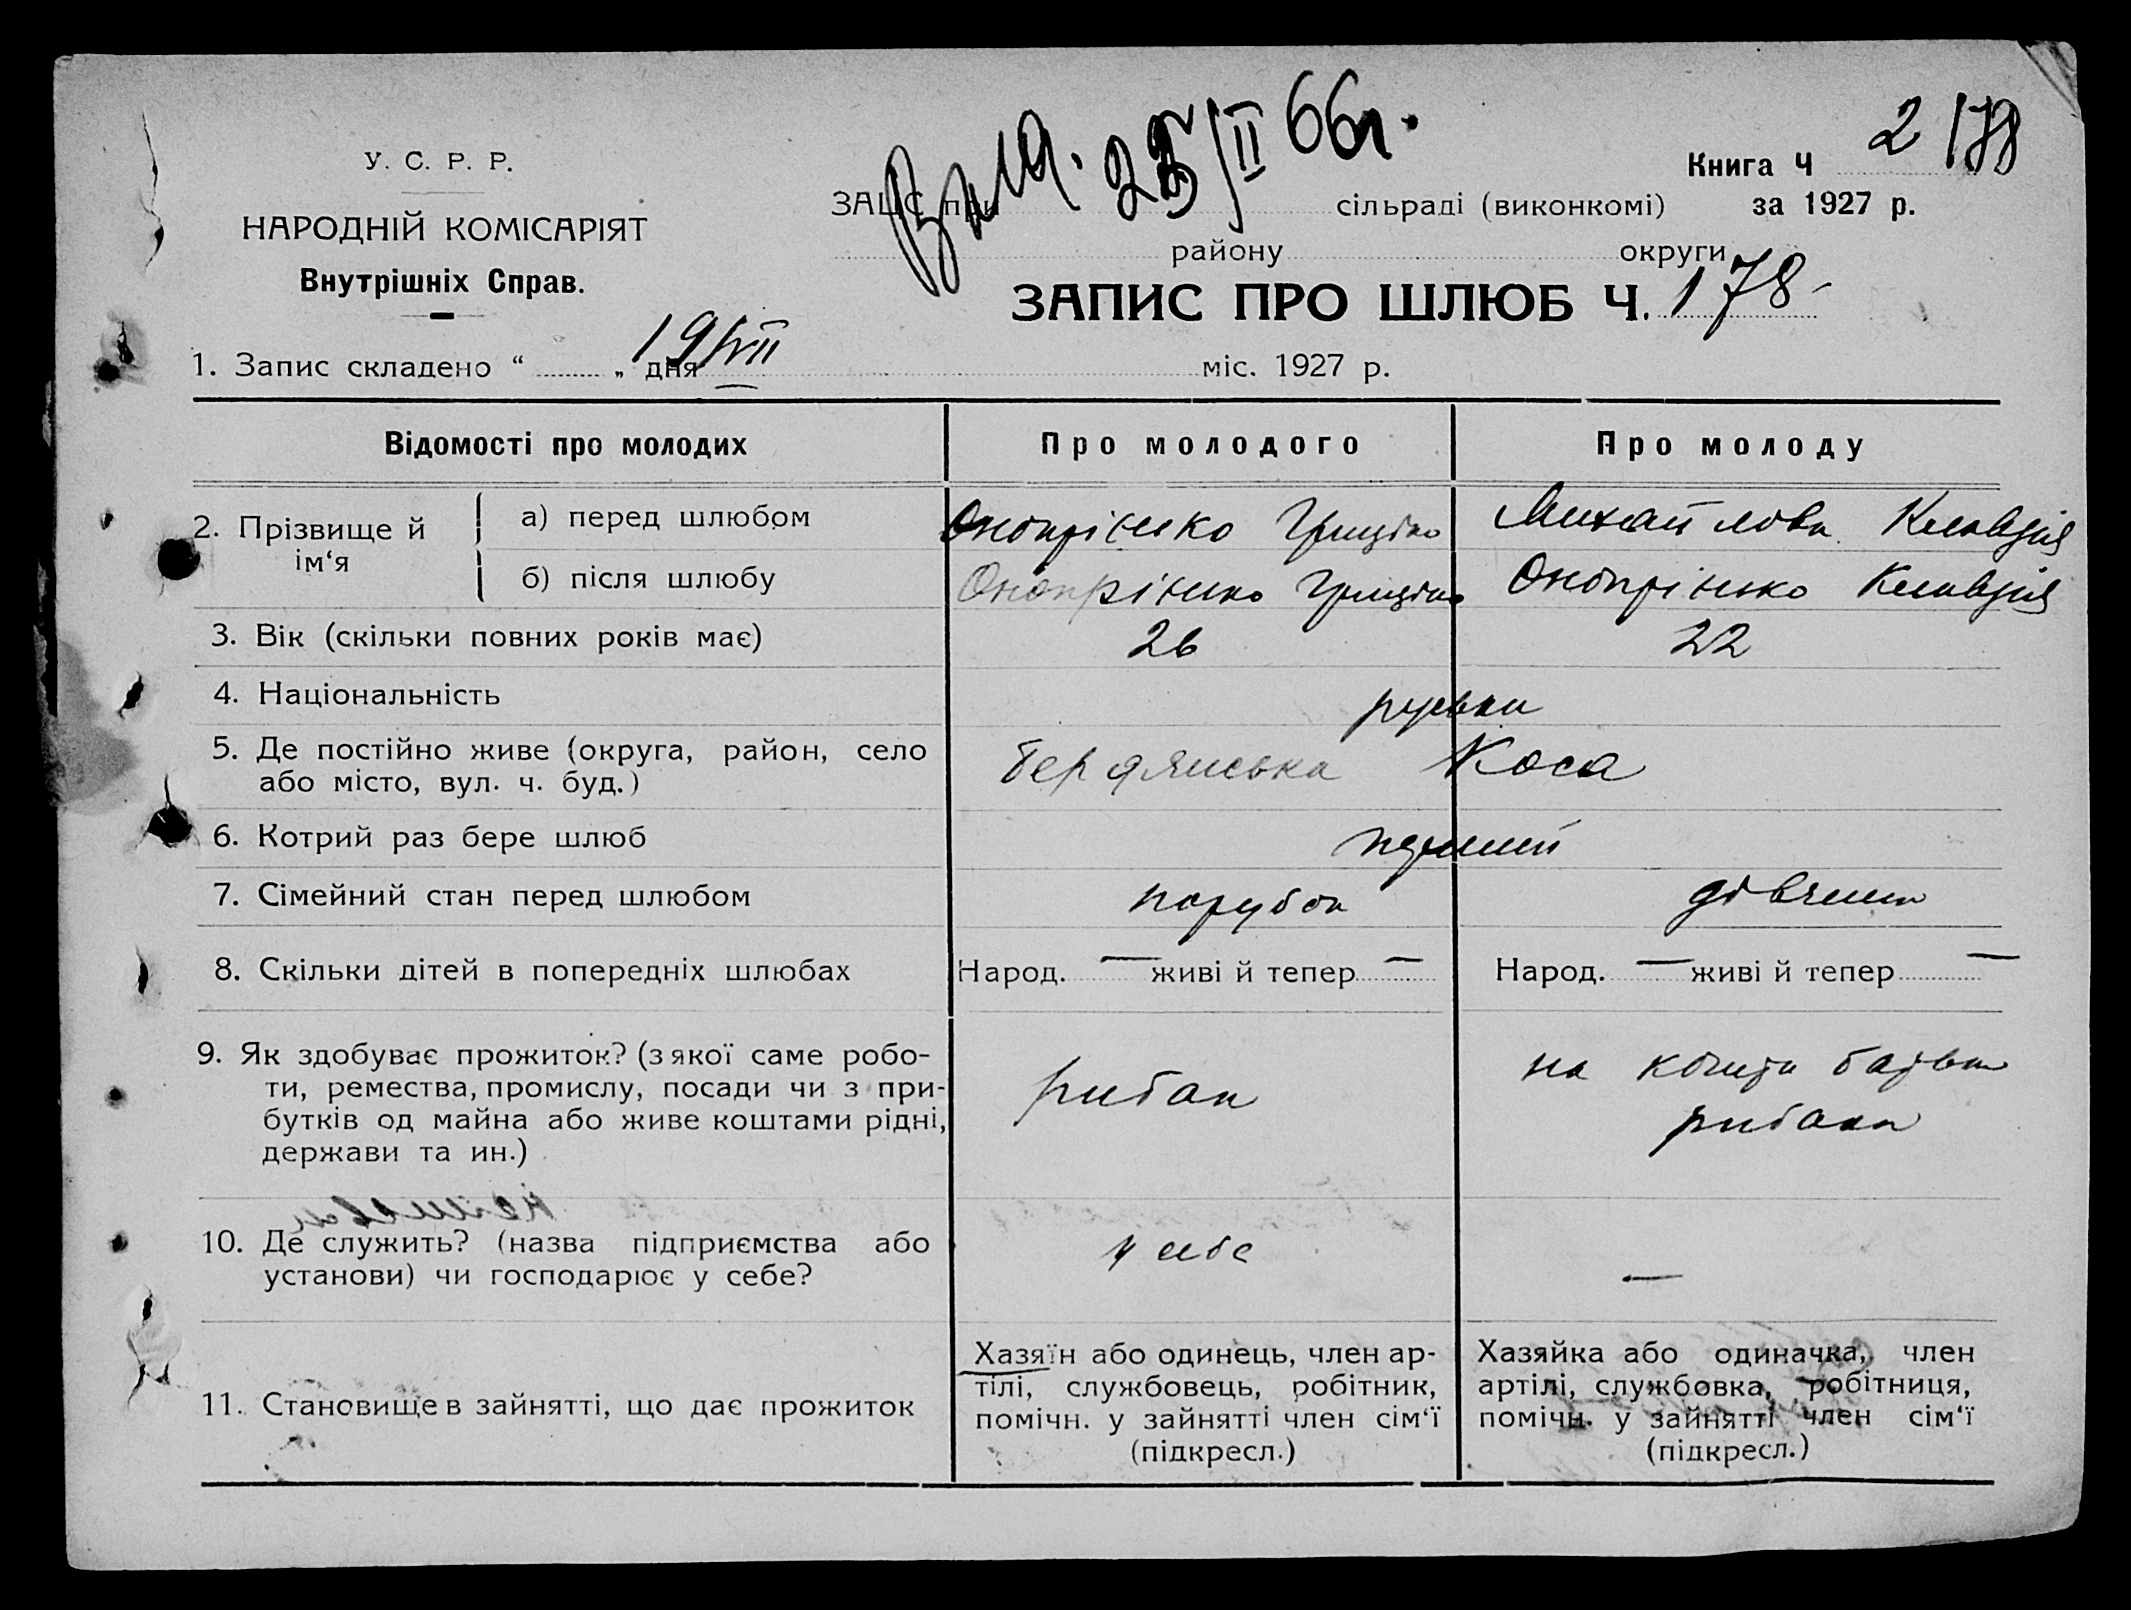 Вид. 25/II 66г.
2 178
У. С. Р. Р.
Книга Ч
ЗАЦС при сільраді (виконкомі) за 1927 р.
НАРОДНІЙ КОМІСАРІЯТ
району округи
Внутрішніх Справ.
ЗАПИС ПРО ШЛЮБ Ч. 178-
1. Запис складено “ „ дня 19/VII міс. 1927 р.
Відомості про молодих Про молодого Про молоду
2. Прізвище й ім‘я
а) перед шлюбом Онопрієнко Грицько Михайлова Клавдія
б) після шлюбу Онопрієнко Грицько Онопрієнко Клавдія
3. Вік (скільки повних років має) 26 22
4. Національність руські
5. Де постійно живе (округа, район, село
або місто, вул. ч. буд.) Бердянська Коса
6. Котрий раз бере шлюб перший
7. Сімейний стан перед шлюбом парубок дівчина
8. Скільки дітей в попередніх шлюбах Народ. — живі й тепер — Народ. — живі й тепер —
9. Як здобуває прожиток? (з якої саме робо-
ти, ремества, промислу, посади чи з при-
бутків од майна або живе коштами рідні,
держави та ин.)
рибак
на кошти батька
рибака
10. Де служить? (назва підприємства або
установи) чи господарює у себе?
у себе —
11. Становище в зайнятті, що дає прожиток
Хазяїн або одинець, член ар-
тілі, службовець, робітник,
помічн. у зайнятті член сім‘ї
(підкресл.)
Хазяйка або одиначка, член
артілі, службовка, робітниця,
помічн. у зайнятті член сім‘ї
(підкресл.)